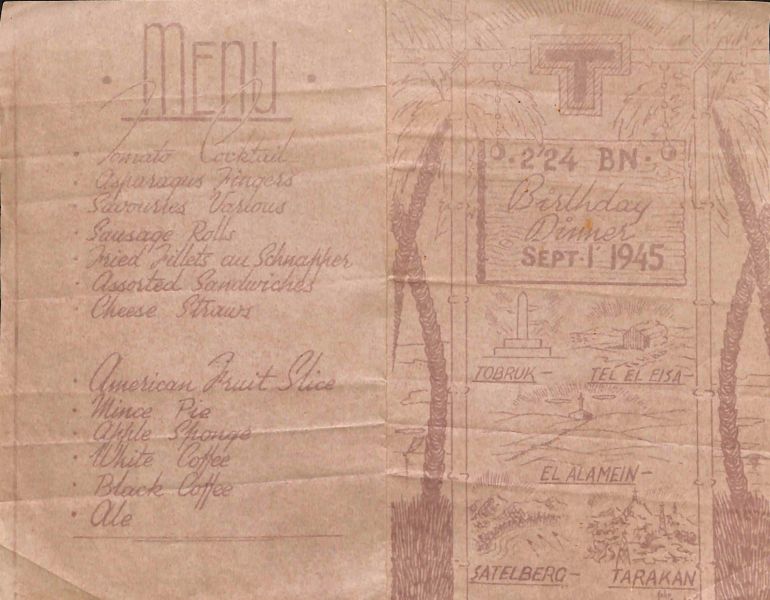 MENU
Tomato Cocktail
Asparagus Fingers
Savouries Various
Sausage Rolls
Fried Fillets au Schnapper
Assorted Sandwiches
Cheese Straws
American Fruit Slice
Mince Pie
Apple Sponge
White Coffee
Black Coffee
Ale
T
· 2/24 BN ·
Birthday
Dinner
SEPT. 1st 1945
TOBRUK –
TEL EL EISA –
EL ALAMEIN –
SATELBERG –
TARAKAN